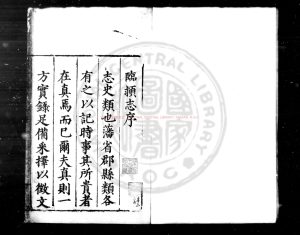 臨頴志序
志史類也藩省郡縣類各
有之以記時事其所貴者
在真焉而已爾夫真則一
方實錄足備采擇以徵文
CENTRAL LIBRARY